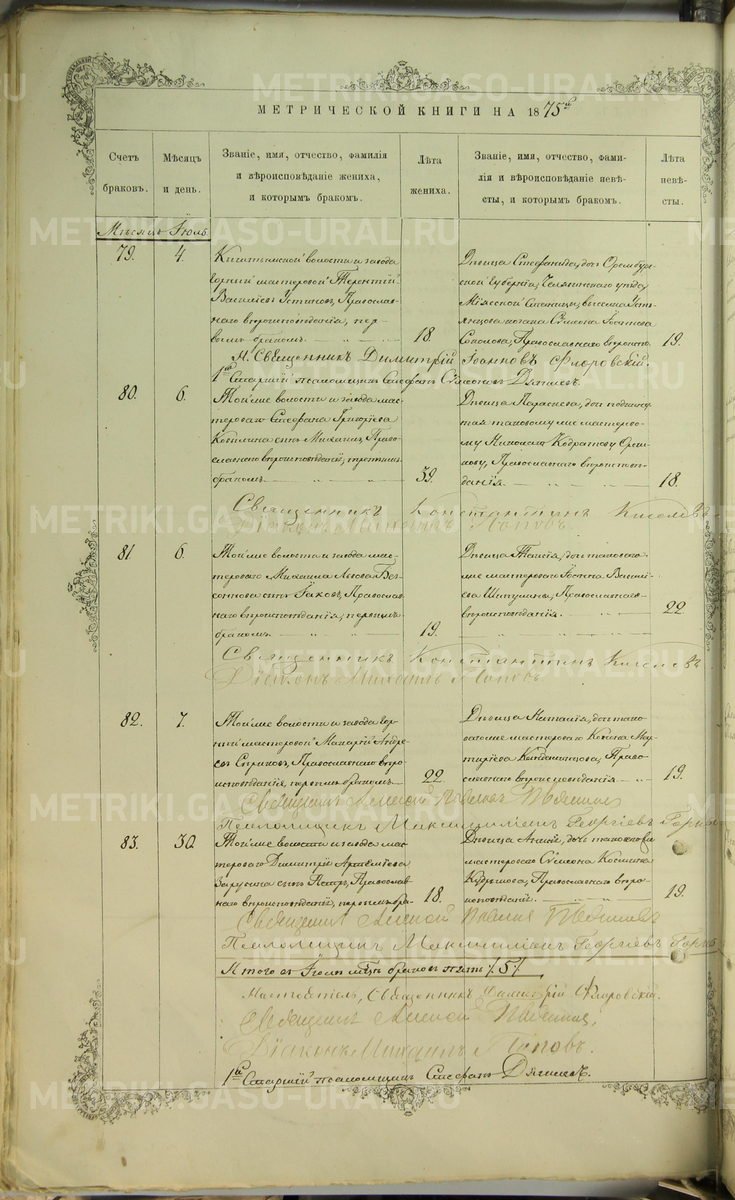 МЕТРИЧЕСКОЙ КНИГИ НА 1875й
Счетъ браковъ.
Мѣсяцъ и день.
Званіе, имя, отчество, фамилія и вѣроисповѣданіе жениха, и которымъ бракомъ.
Лѣта жениха.
Званіе, имя, отчество, фамилія и вѣроисповѣданіе невѣсты, и которымъ бракомъ.
Лѣта невѣсты.
Мѣсяцъ Іюль
79. 4.
Кыштымской волости и завода
горный мастеровой Терентій
Василіевъ Устиновъ, Православ-
наго вѣроисповѣданія, пер-
вымъ бракомъ.
18.
Дѣвица Стефанида, дочь Оренбург-
ской Губерніи, Челябинскаго уѣзда,
Міясской Станицы,
казака Сѵмеона
Соколова, Православнаго вѣроисп.
19.
Н. Священникъ Димитрій Іоанновъ Флоровскій.
1й Старшій псаломщикъ Стефанъ Сѵмеоновъ Дягилевъ.
80. 6.
Той же волости и завода мас-
тероваго Стефана Григоріева
сынъ Михаилъ, Право-
славнаго вѣроисповѣданія, третьимъ
бракомъ
39.
Дѣвица Параскева, дочь
таковому же мастерово-
му Николаю Кодратову
Православнаго вѣроиспо-
данія.
18.
Священникъ Константинъ Киселевъ
Діаконъ Михаилъ Поповъ.
81 6.
Той же волости и завода мас-
тероваго Михаила
сынъ Іаковъ, Православ-
наго вѣроисповѣданія, первымъ
бракомъ
19.
Дѣвица Таисія, дочь таковаго
же мастероваго Іоанна Василі-
ева Шипулина, Православнаго
вѣроисповѣданія.
22
Священникъ Константинъ Киселевъ
Діаконъ Михаилъ Поповъ
82. 7.
Той же волости и завода гор-
ный мастеровой Макарій Андре-
евъ Православнаго вѣро-
исповѣданія, первымъ бракомъ
22
Дѣвица Наталія, дочь тако-
ваго же мастероваго Конона Мар-
тиріева Православ-
славнаго вѣроисповѣданія
19.
Священникъ Алексій
Псаломщикъ Максимиліанъ Георгіевъ
83. 30.
Той же волости и завода мас-
тероваго Димитрія Артемьева
сынъ Петръ, Православ-
наго вѣроисповѣданія, первымъ бра.
18.
Дѣвица дочь таковаго же
мастероваго Сѵмеона Космина
Православнаго вѣро-
исповѣданія.
19.
Священникъ Алексій
Псаломщикъ Максимиліанъ Георгіевъ
Итого въ Іюлѣ мцѣ браковъ пять /5/
Настоятель, Священникъ Димитрій Флоровскій.
Священникъ Алексій
Діаконъ Михаилъ Поповъ.
1й Старшій псаломщикъ Стефанъ Дягилевъ.
METRIKI.GASO-URAL.RU